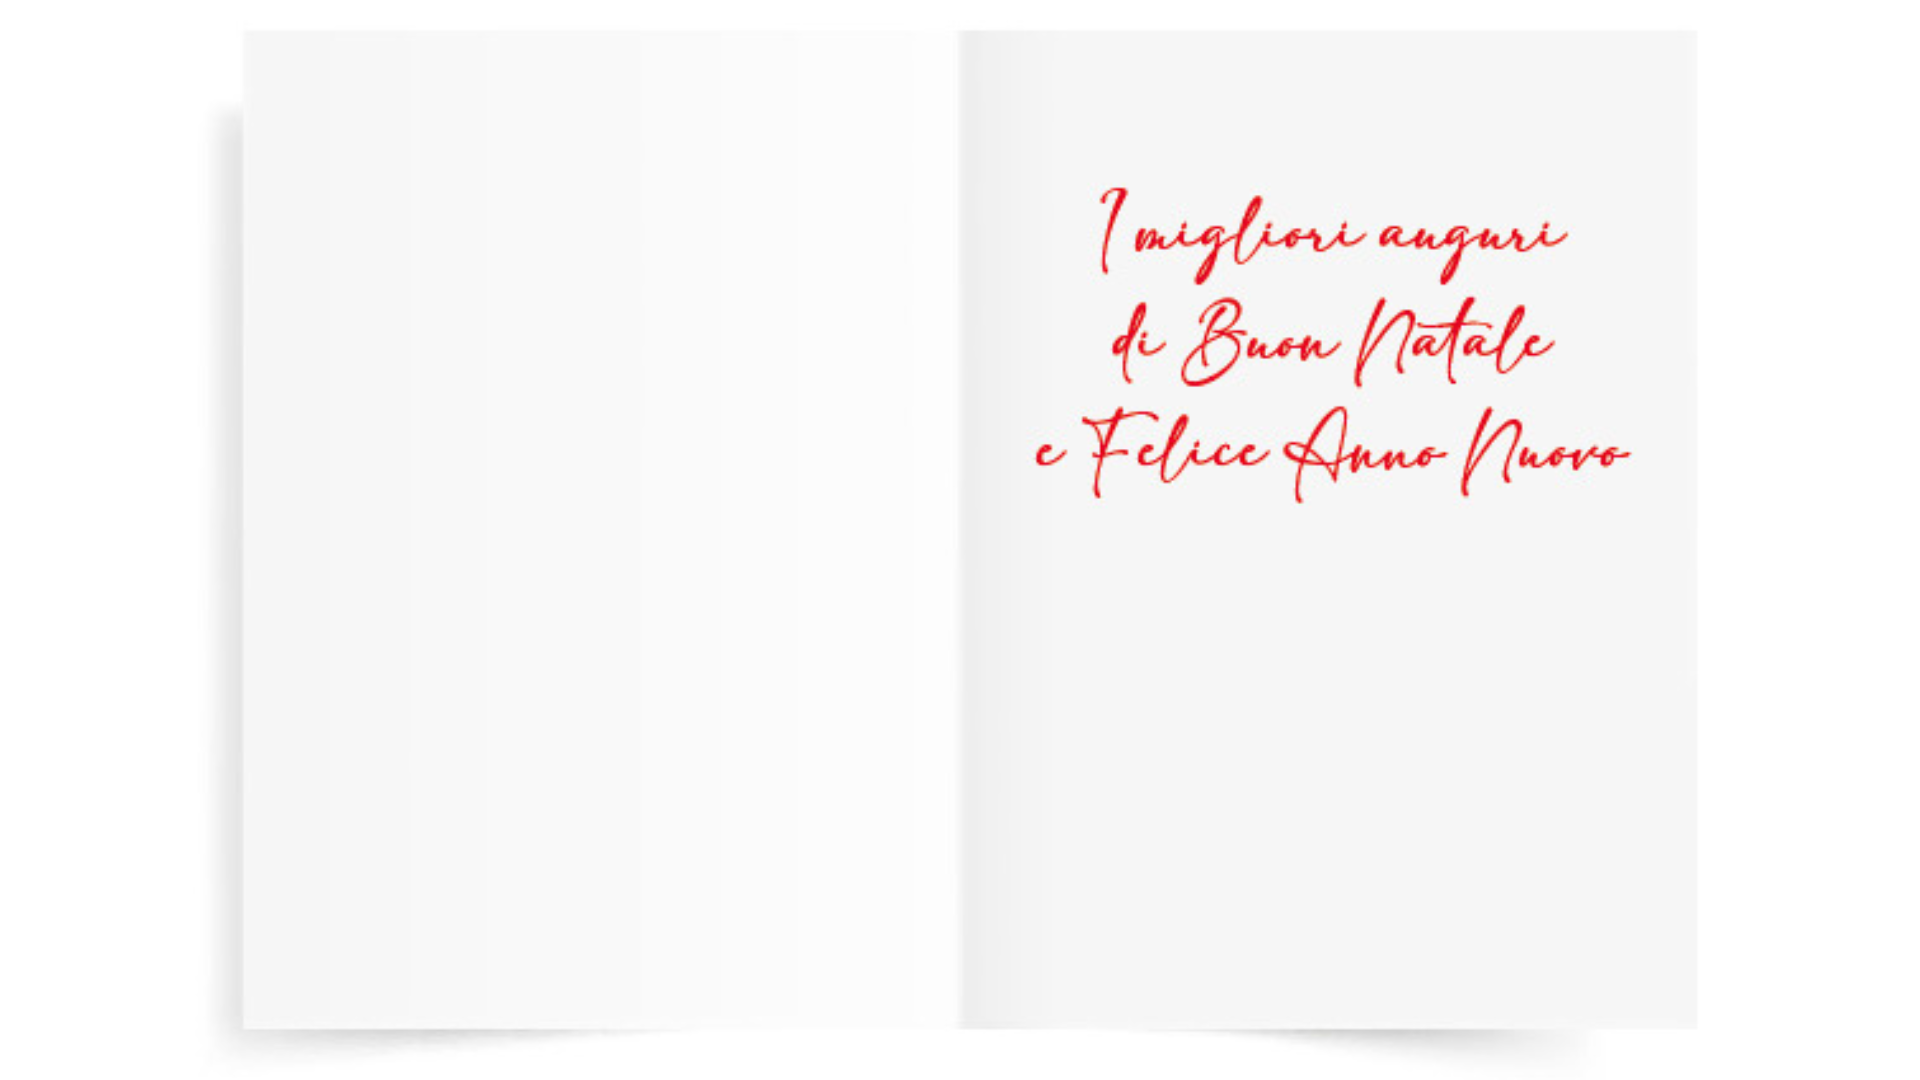 I migliori auguri
di Buon Natale
e Felice Anno Nuovo